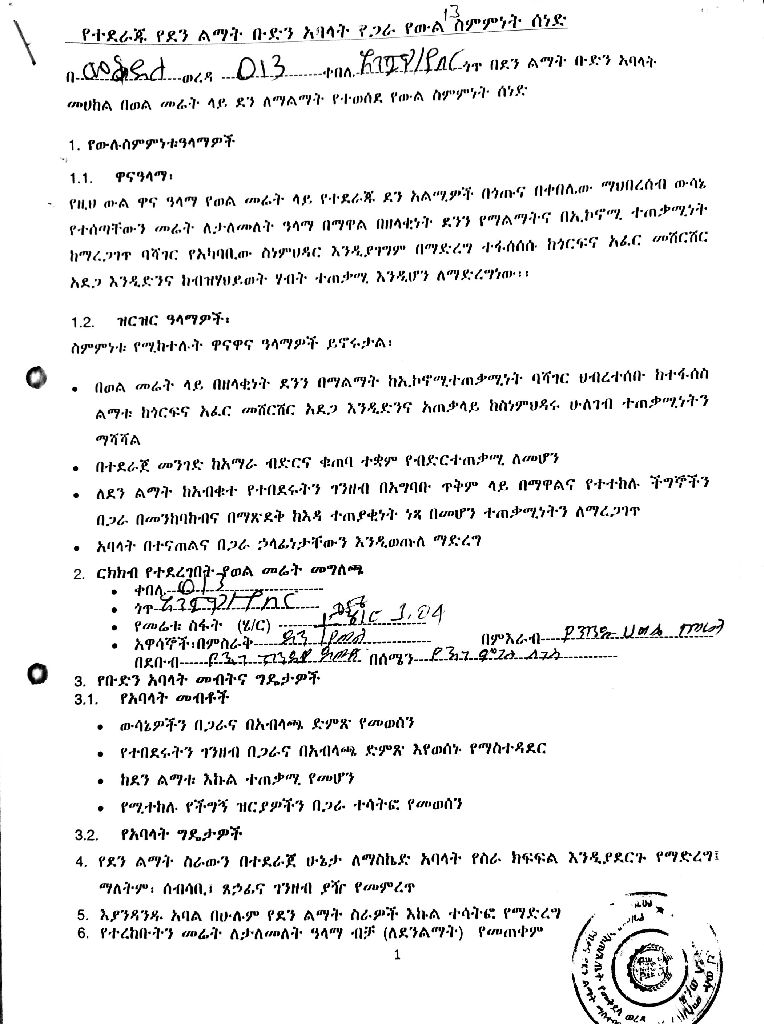 13
የተደራጁ የደን ልማት ቡድን አባላት የጋራ የውል ስምምነት ሰነድ
በ ወረዳ 013 ቀበሌ ጎጥ በደን ልማት ቡድን አባላት
መሀከል በወል መሬት ላይ ደን ለማልማት የተወሰደ የውል ስምምነት ሰነድ
1. የውሉስምምነቱዓላማዎች
1.1. ዋናዓላማ፡
የዚህ ውል ዋና ዓላማ የወል መሬት ላይ የተደራጁ ደን አልሚዎች በጎጡና በቀበሌው ማህበረሰብ ውሳኔ
የተሰጣቸውን መሬት ለታለመለት ዓላማ በማዋል በዘላቂነት ደንን የማልማትና በኢኮኖሚ ተጠቃሚነት
ከማረጋገጥ ባሻገር የአካባቢው ስነምህዳር እንዲያገግም በማድረግ ተፋሰሰሱ ከጎርፍና አፈር መሸርሸር
አደጋ እንዲድንና ከብዝሃህይወት ሃብት ተጠቃሚ እንዲሆን ለማድረግነው፡፡
1.2. ዝርዝር ዓላማዎች፡
ስምምነቱ የሚከተሉት ዋናዋና ዓላማዎች ይኖሩታል፡
• በወል መሬት ላይ በዘላቂነት ደንን በማልማት ከኢኮኖሚተጠቃሚነት ባሻገር ህብረተሰቡ ከተፋሰስ
ልማቱ ከጎርፍና አፈር መሸርሸር አደጋ እንዲድንና አጠቃላይ ከስነምህዳሩ ሁለገብ ተጠቃሚነትን
ማሻሻል
• በተደራጀ መንገድ ከአማራ ብድርና ቁጠባ ተቋም የብድርተጠቃሚ ለመሆን
• ለደን ልማት ከአብቁተ የተበደሩትን ገንዘብ በአግባቡ ጥቅም ላይ በማዋልና የተተከሉ ችግኞችን
በጋራ በመንከባከብና በማጽደቅ ከእዳ ተጠያቂነት ነጻ በመሆን ተጠቃሚነትን ለማረጋገጥ
• አባላት በተናጠልና በጋራ ኃላፊነታቸውን እንዲወጡለ ማድረግ
2. ርክክብ የተደረገበት የወል መሬት መግለጫ
• ቀበሌ 013
• ጎጥ
• የመሬቱ ስፋት (ሄ/ር) 3.04
• አዋሳኞች፡በምስራቅ በምእራብ
በደቡብ በሰሜን
3. የቡድን አባላት መብትና ግዴታዎች
3.1. የአባላት መብቶች
• ውሳኔዎችን በጋራና በአብላጫ ድምጽ የመወሰን
• የተበደሩትን ገንዘብ በጋራና በአብላጫ ድምጽ እየወሰኑ የማስተዳደር
• ከደን ልማቱ እኩል ተጠቃሚ የመሆን
• የሚተከሉ የችግኝ ዝርያዎችን በጋራ ተሳትፎ የመወሰን
3.2. የአባላት ግዴታዎች
4. የደን ልማት ስራውን በተደራጀ ሁኔታ ለማስኬድ አባላት የስራ ክፍፍል እንዲያደርጉ የማድረግ፤
ማለትም፡ ሰብሳቢ፡ ጸኃፊና ገንዘብ ያዥ የመምረጥ
5. እያንዳንዱ አባል በሁሉም የደን ልማት ስራዎች እኩል ተሳትፎ የማድረግ
6. የተረከቡትን መሬት ለታለመለት ዓላማ ብቻ (ለደንልማት) የመጠቀም
1